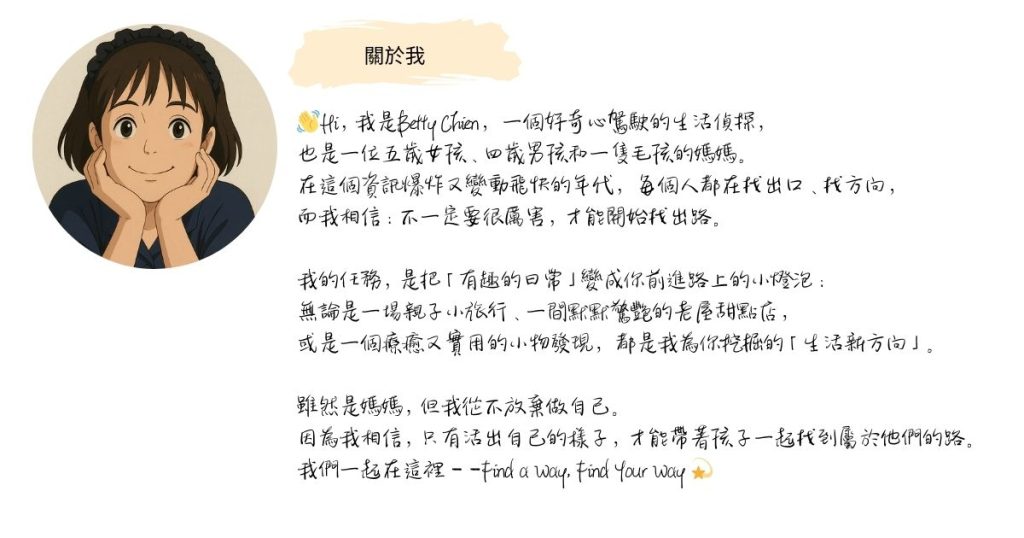 關於我
👋Hi, 我是Betty Chien, 一個好奇心駕駛的生活偵探,
也是一位五歲女孩、四歲男孩和一隻毛孩的媽媽。
在這個資訊爆炸又變動飛快的年代, 每個人都在找出口、找方向,
而我相信:不一定要很厲害, 才能開始找出路。
我的任務, 是把「有趣的日常」變成你前進路上的小燈泡:
無論是一場親子小旅行、一間默默驚艷的老屋甜點店,
或是一個療癒又實用的小物發現, 都是我為你挖掘的「生活新方向」。
雖然是媽媽, 但我從不放棄做自己。
因為我相信, 只有活出自己的樣子, 才能帶著孩子一起找到屬於他們的路。
我們一起在這裡--Find a way, Find Your Way 💫